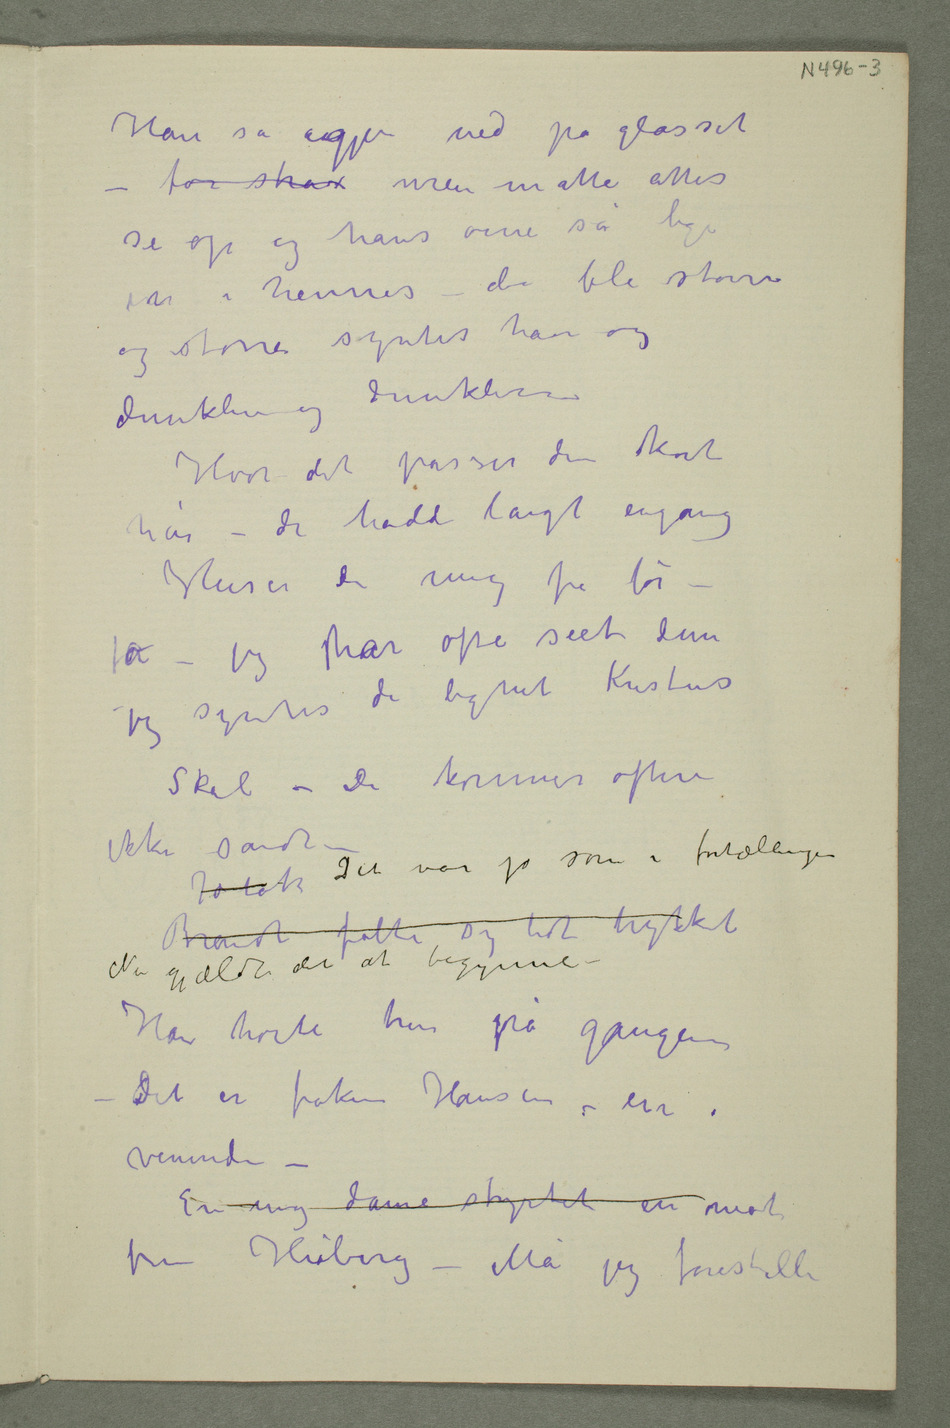 N496-3
Han så igjen ned på glasset
– for strax men måtte attes
se op og hans øine så lige
in i hennes – de ble større
og større syntes han og
dunklere og dunklere
Hvor det passer dem kort
hår – de hadde langt engang
Husker De mig fra før –
ja – jeg har ofte seet dem
jeg syntes de lignet Kristus
Skål – De kommer oftere
ikke sandt –
Jo tak Det var jo som i fortællingen
Brandt følte sig lidt trykket
Nu gjældte det at begynne –
Han hørte trin på gangen
– Det er frøken Hansen – en
veninde –
En ung dame styrtet in mot
fru Heiberg – Må jeg forestille